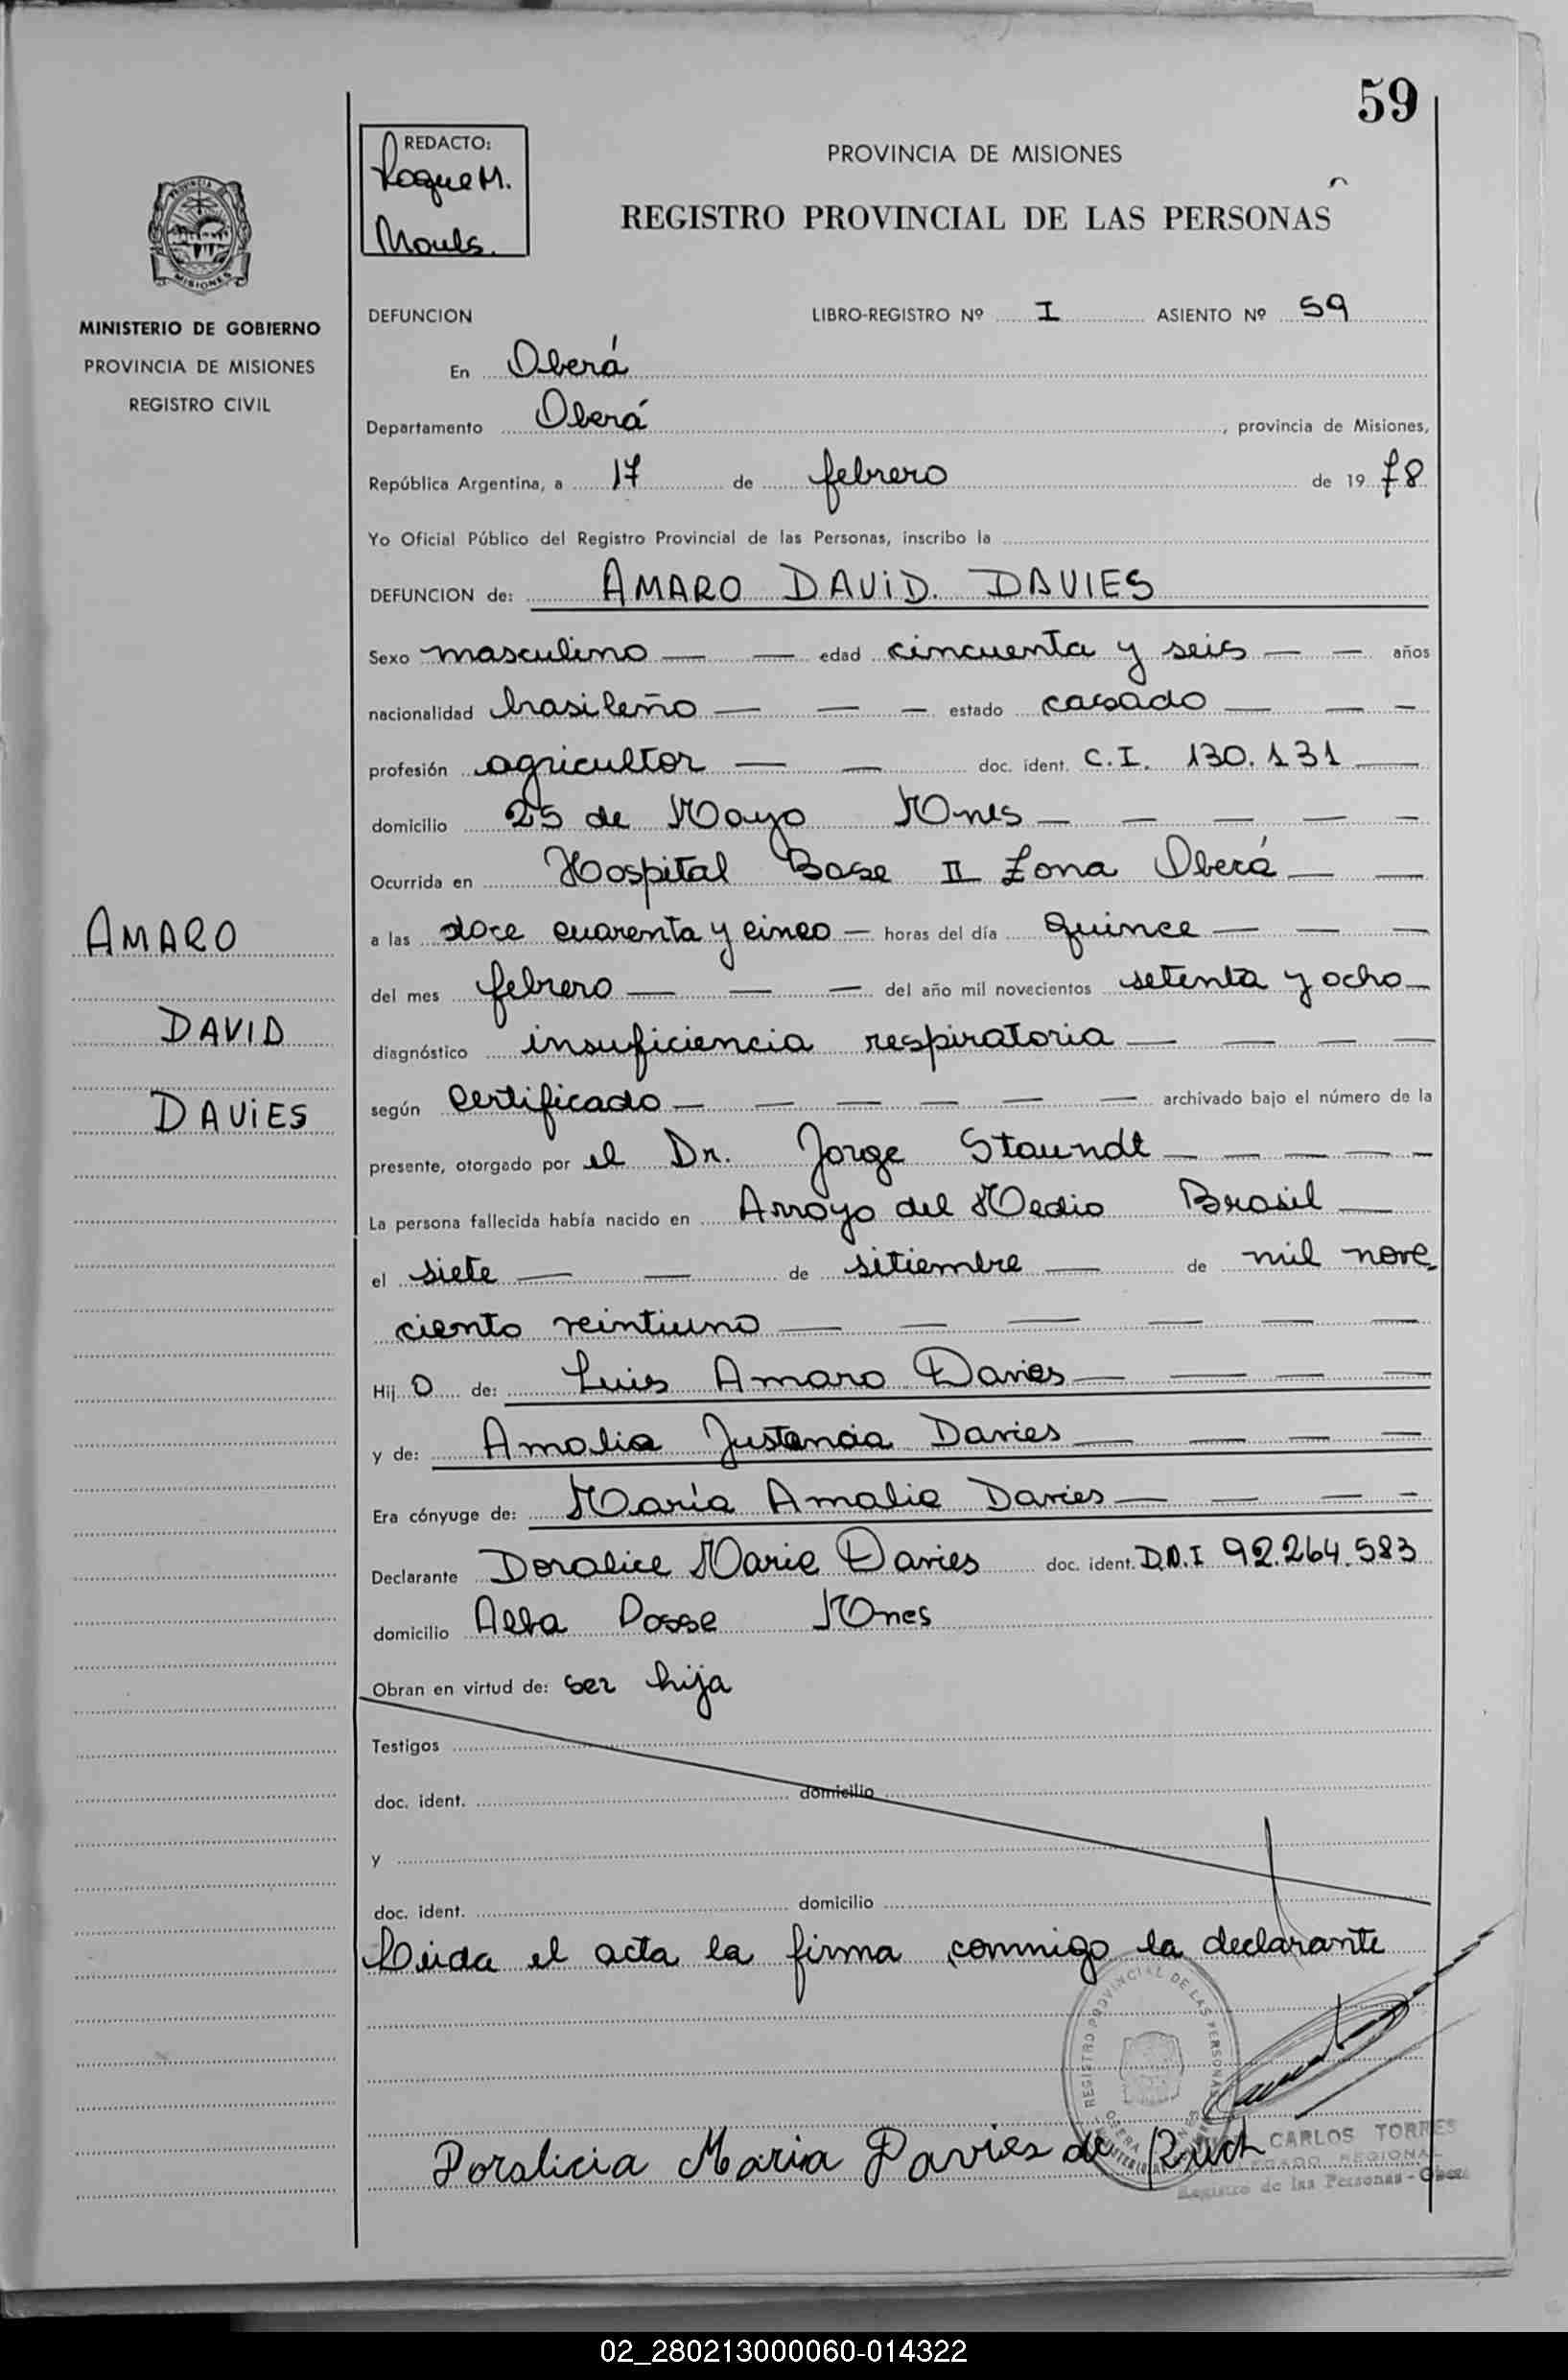 59
REDACTO:
Roque M.
PROVINCIA DE MISIONES
REGISTRO PROVINCIAL DE LAS PERSONAS
PROVINCIA
MISIONES
MINISTERIO DE GOBIERNO
PROVINCIA DE MISIONES
REGISTRO CIVIL
DEFUNCION LIBRO-REGISTRO Nº I ASIENTO Nº 59
En Oberá
Departamento Oberá, provincia de Misiones,
República Argentina, a 17 de febrero de 1978
Yo Oficial Público del Registro Provincial de las Personas, inscribo la
DEFUNCION de: AMARO DAVID. DAVIES
Sexo masculino — — edad cincuenta y seis — — años
nacionalidad brasileño — — — estado casado — — —
profesión agricultor — — doc. ident. C.I. 130.131 —
domicilio 25 de Mayo Mnes — — — — —
Ocurrida en Hospital Base II Zona Oberá — —
a las doce cuarenta y cinco — horas del día quince — — —
del mes febrero — — — del año mil novecientos setenta y ocho —
diagnóstico insuficiencia respiratoria — — — —
según Certificado — — — — — — archivado bajo el número de la
presente, otorgado por el Dr. Jorge Staundt — — — — —
La persona fallecida había nacido en Arroyo del Medio Brasil —
el siete — — de sitiembre — de mil nove
ciento veintiuno — — — — — —
Hijo de: Luis Amaro Davies — — — —
y de: Amalia Justancia Davies — — — —
Era cónyuge de: María Amalia Davies — — — —
Declarante Doralice Maria Davies doc. ident. D.N.I 92.264.583
domicilio Alba Posse Mnes
Obran en virtud de: ser hija
Testigos
doc. ident. domicilio
y
doc. ident. domicilio
Leida el acta la firma conmigo la declarante
AMARO
DAVID
DAVIES
REGISTRO PROVINCIAL DE LAS PERSONAS
Doralicia Maria Davies de Ruch
CARLOS TORRES
DELEGADO REGIONAL
Registro de las Personas - Oberá
02_280213000060-014322